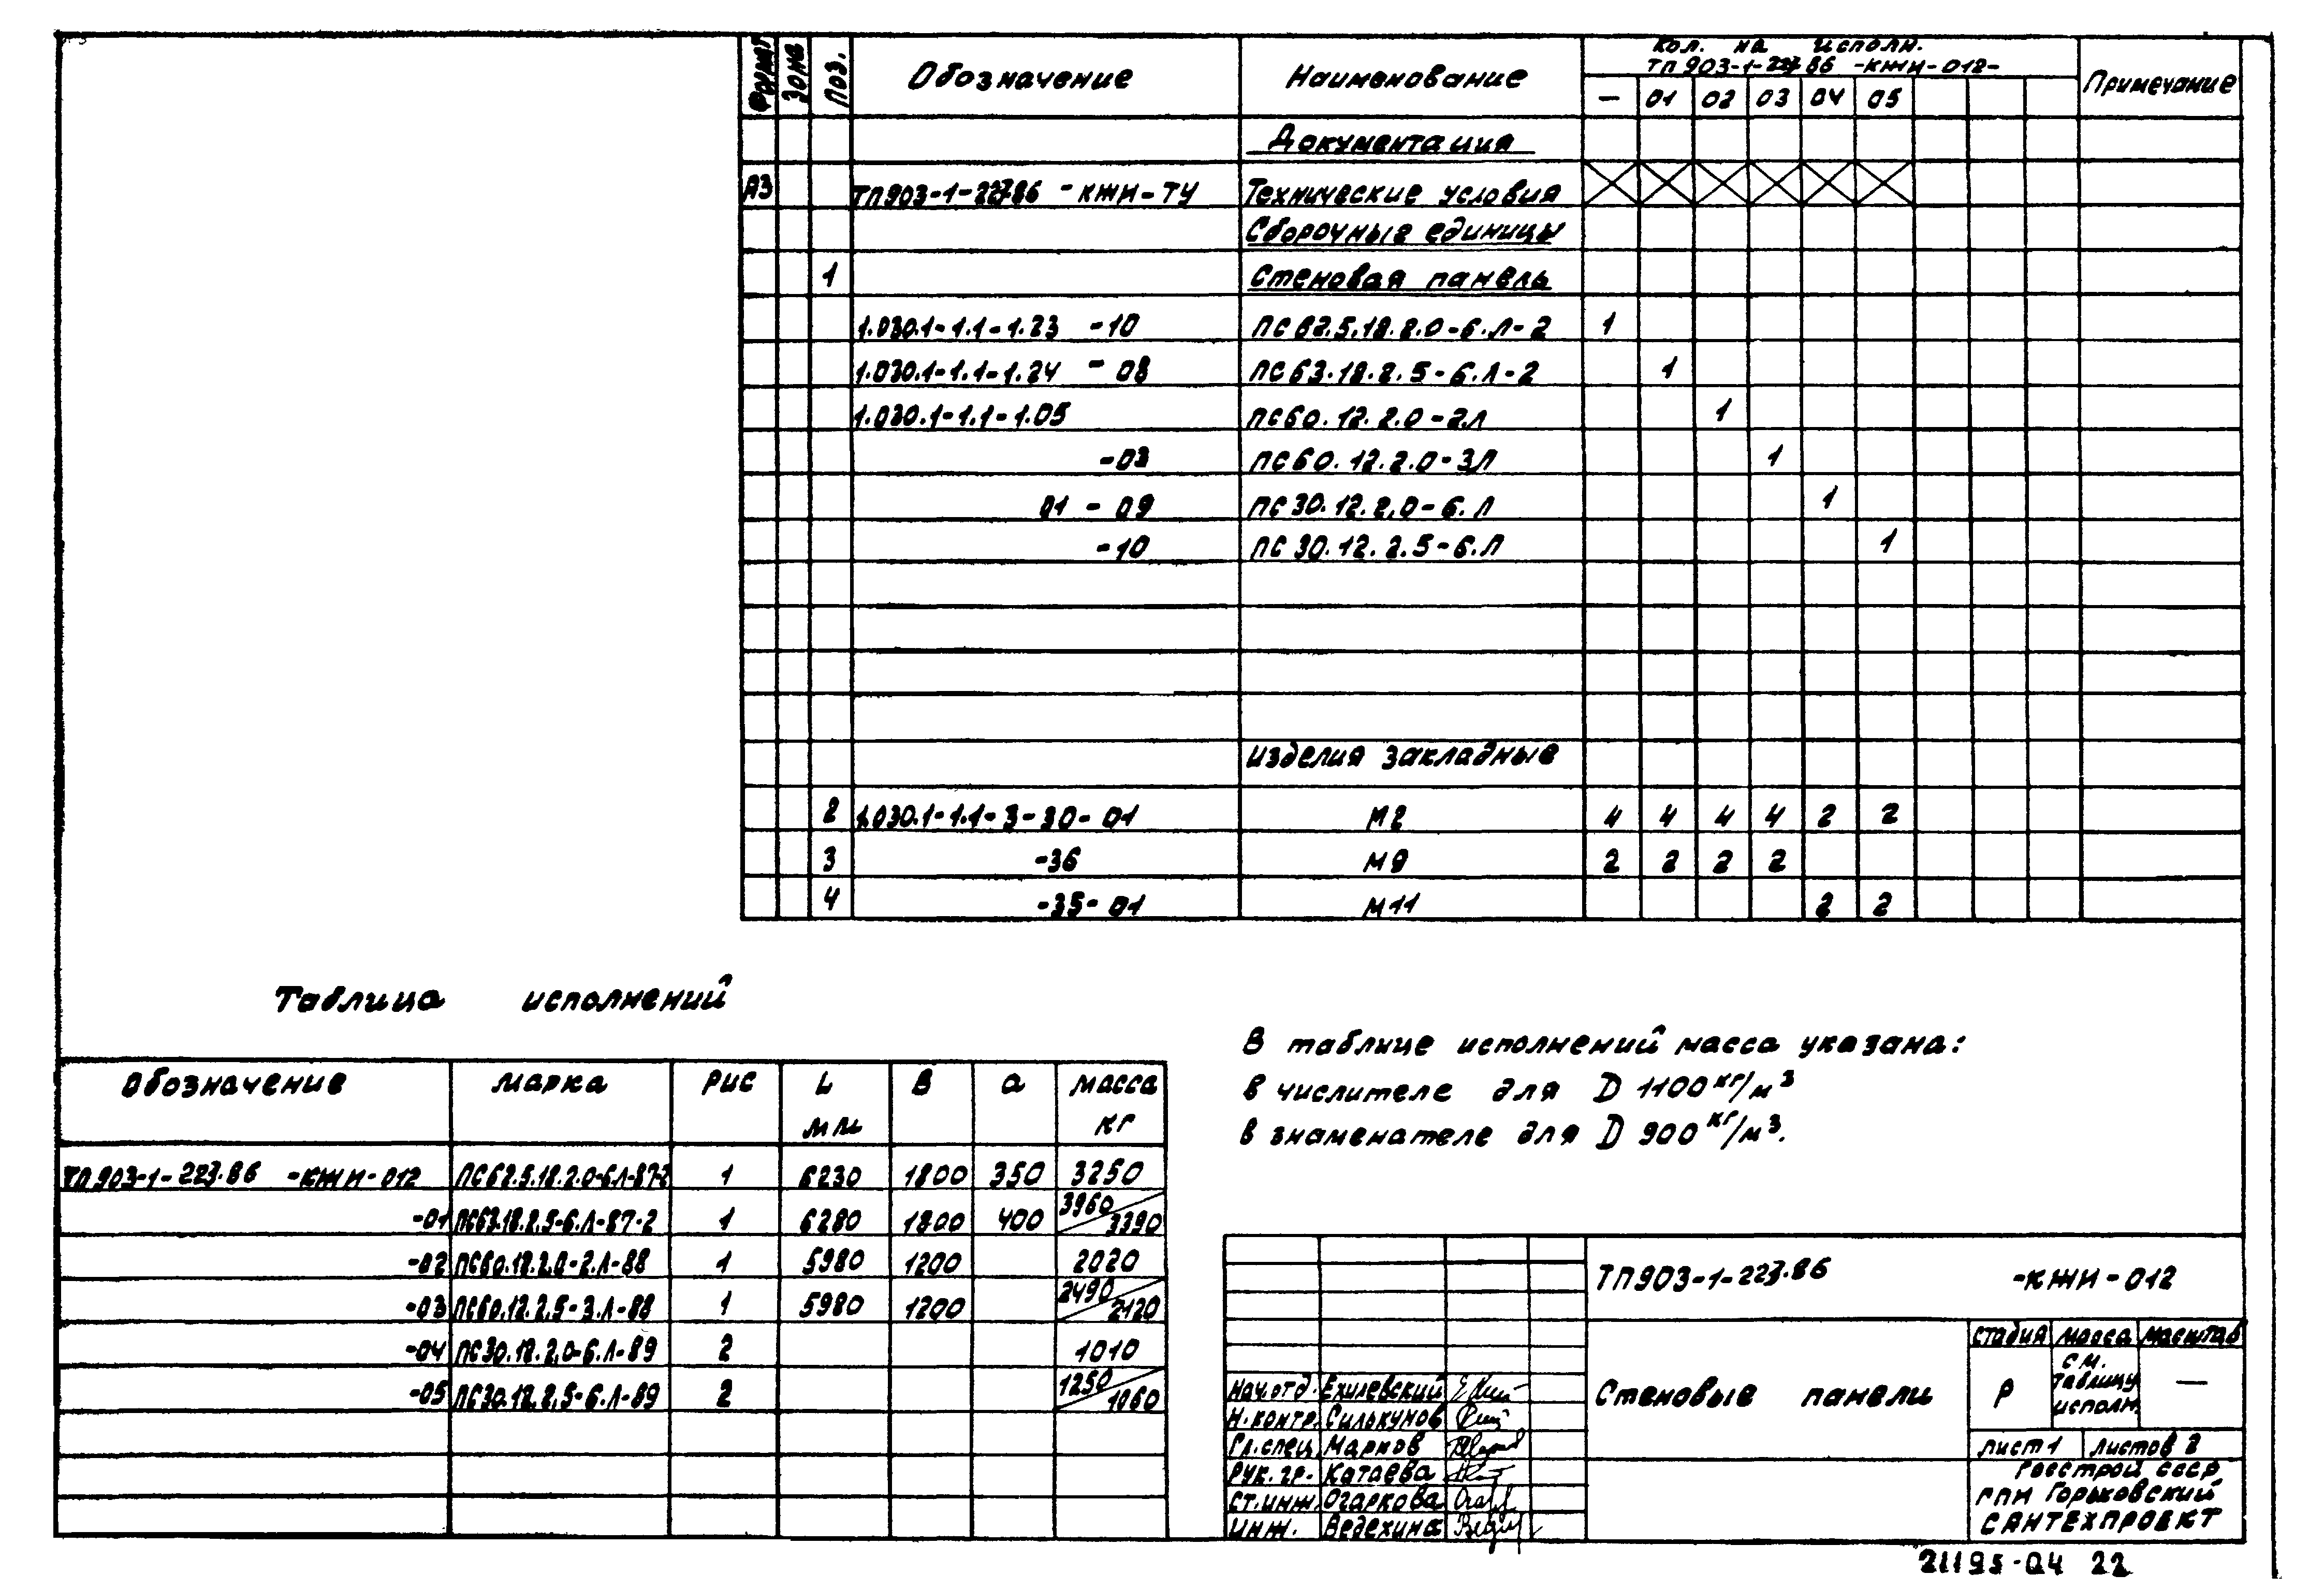 Формат Зона Поз. Обозначение Наименование Кол. на исполн. Примечание
ТП 903-1-227.86 -КЖИ-012-
— 01 02 03 04 05
Документация
А3 ТП903-1-227.86 -КЖИ-ТУ Технические условия
Сборочные единицы
1 Стеновая панель
1.030.1-1.1-1.23 -10 ПС 62.5.18.2.0-6.Л-2 1
1.030.1-1.1-1.24 -08 ПС 63.18.2.5-6.Л-2 1
1.030.1-1.1-1.05 ПС60.12.2.0-2Л 1
-03 ПС60.12.2.0-3Л 1
01-09 ПС 30.12.2.0-6.Л 1
-10 ПС 30.12.2.5-6.Л 1
Изделия закладные
2 1.030.1-1.1-3-30-01 М2 4 4 4 4 2 2
3 -36 М9 2 2 2 2
4 -35-01 М11 2 2
Таблица исполнений
Обозначение Марка Рис L В а Масса
мм кг
ТП903-1-227.86 -КЖИ-012 ПС62.5.18.2.0-6.Л-87-2 1 6230 1800 350 3250
-01 ПС63.18.2.5-6.Л-87-2 1 6280 1800 400 3960/3390
-02 ПС60.12.2.0-2.Л-88 1 5980 1200 2020
-03 ПС60.12.2.5-3.Л-88 1 5980 1200 2490/2120
-04 ПС30.12.2.0-6.Л-89 2 1010
-05 ПС30.12.2.5-6.Л-89 2 1250/1060
В таблице исполнений масса указана:
в числителе для D 1100 кг/м³
в знаменателе для D 900 кг/м³.
ТП903-1-227.86 -КЖИ-012
Стеновые панели
стадия масса масштаб
Р см. таблицу исполн. —
лист 1 листов 2
Госстрой СССР
ГПИ Горьковский
САНТЕХПРОЕКТ
Нач.отд. Ехилевский
Н.контр. Силькунов
Гл.спец. Марков
Рук.гр. Катаева
Ст.инж. Огаркова
Инж. Ведехина
21195-04 22